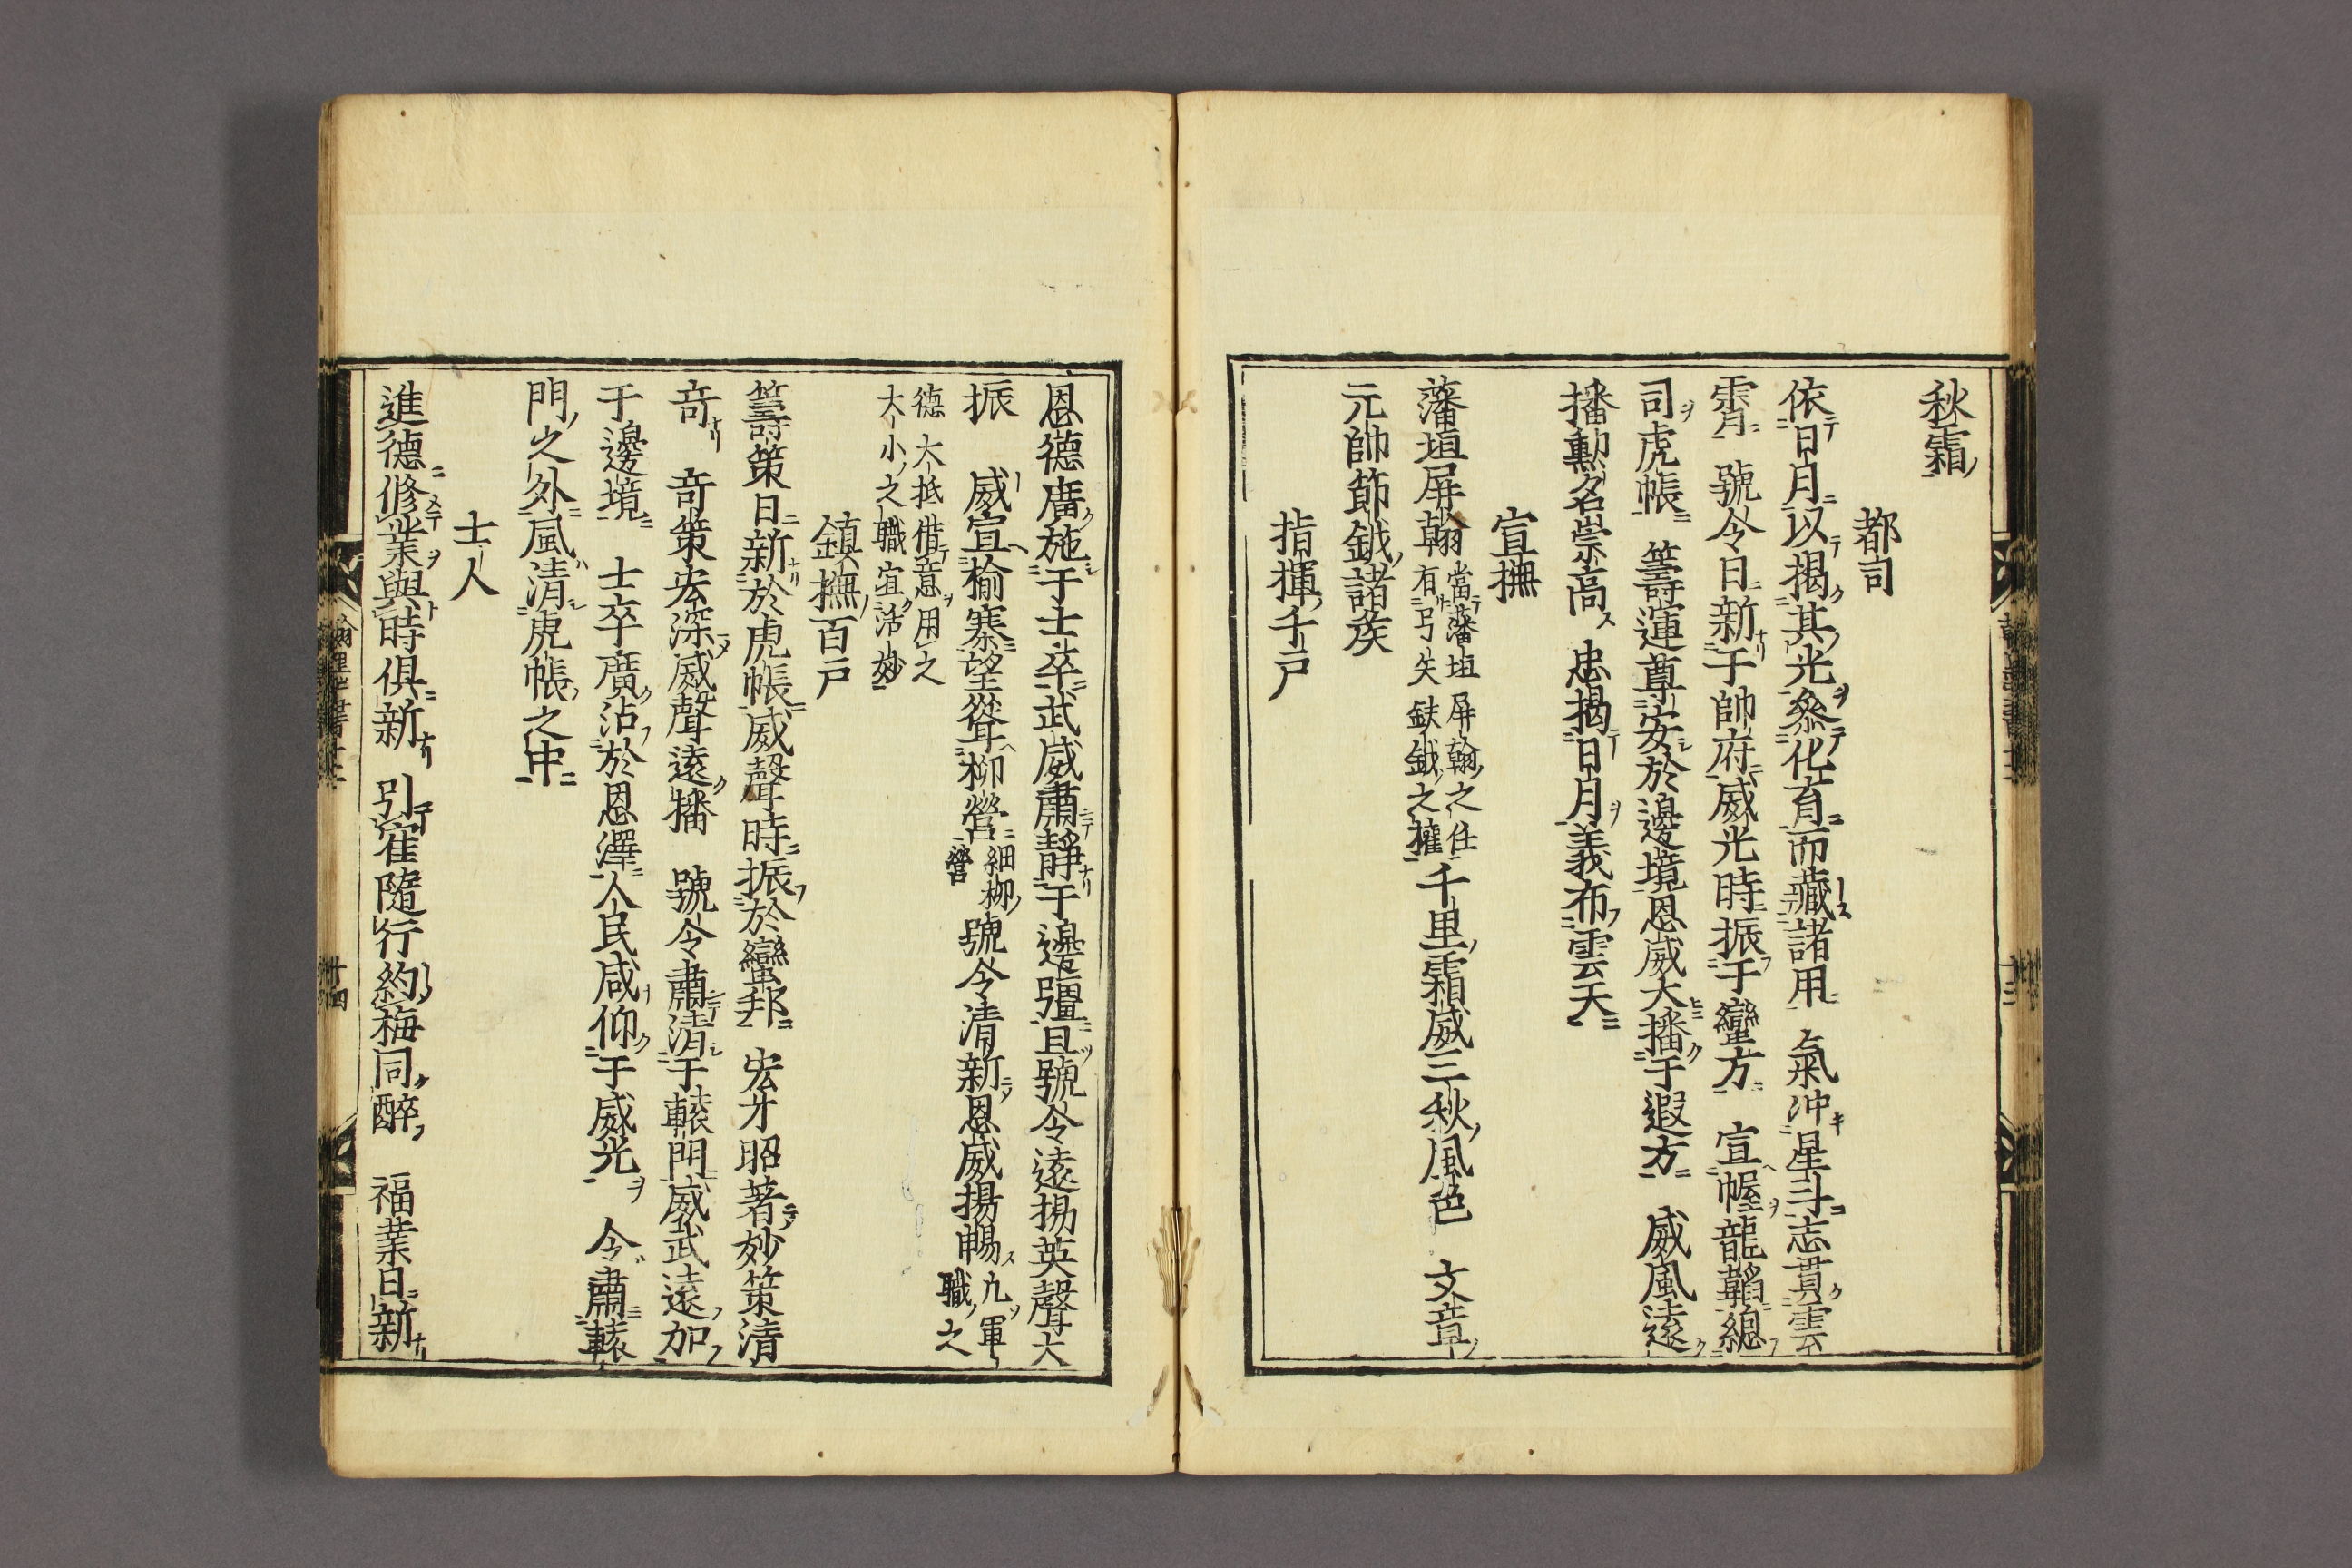 秋霜
都司
依日月以揭其光參化育而藏諸用　氣冲星斗志貫雲
霄　號令日新于帥府威光時振于蠻方　宣幄龍韜總
司虎帳　籌運尊安於邊境恩威大播于遐方　威風遠
播勳名崇高　忠揭日月義布雲天
宣撫
藩垣屏翰當藩垣屏翰之任有弓矢鈇鉞之權千里霜威三秋風色　文章
元帥節鉞諸矦
指揮千戸
恩德廣施于士卒武威肅靜于邊彊且號令遠揚英聲大
振　威宣榆寨望聳柳營細柳營號令清新恩威揚暢凢軍職之
德大抵借意用之大小之職宜活妙
鎮撫百戸
籌策日新於虎帳威聲時振於蠻邦　宏才昭著妙策清
竒　竒策宏深威聲遠播　號令肅清于轅門威武遠加
于邊境　士卒廣沾於恩澤人民咸仰于威光　令肅轅
門之外風清虎帳之中
士人
進德修業與時俱新　引崔隨行約梅同醉　福業日新